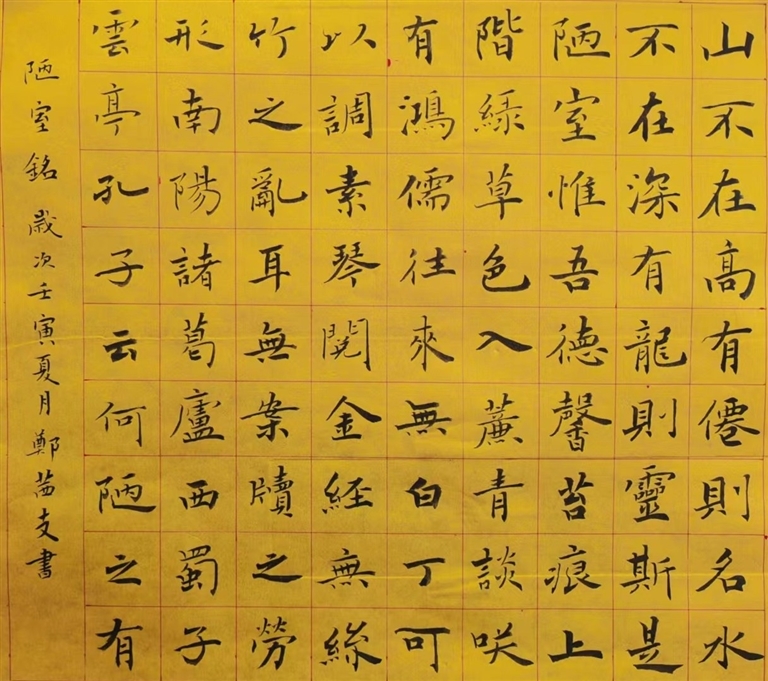 山不在高有僊則名水
不在深有龍則靈斯是
陋室惟吾德馨苔痕上
階緑草色入薕青談咲
有鴻儒往來無白丁可
以調素琴閱金経無絲
竹之亂耳無案牘之勞
形南陽諸葛廬西蜀子
雲亭孔子云何陋之有
陋室銘 歲次壬寅夏月鄭支書